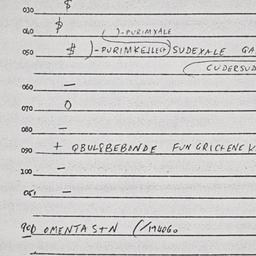 030 $
040 $ )-PURIMYALE
050 $ )-PURIMKEJLECH) SUDEXALE GA
CUDERSUD
060 —
070 0
080 —
090 + QBULSBEBONDE FUNGRICHENE K
100 —
051 —
900 OMENTA S+N (/M4060